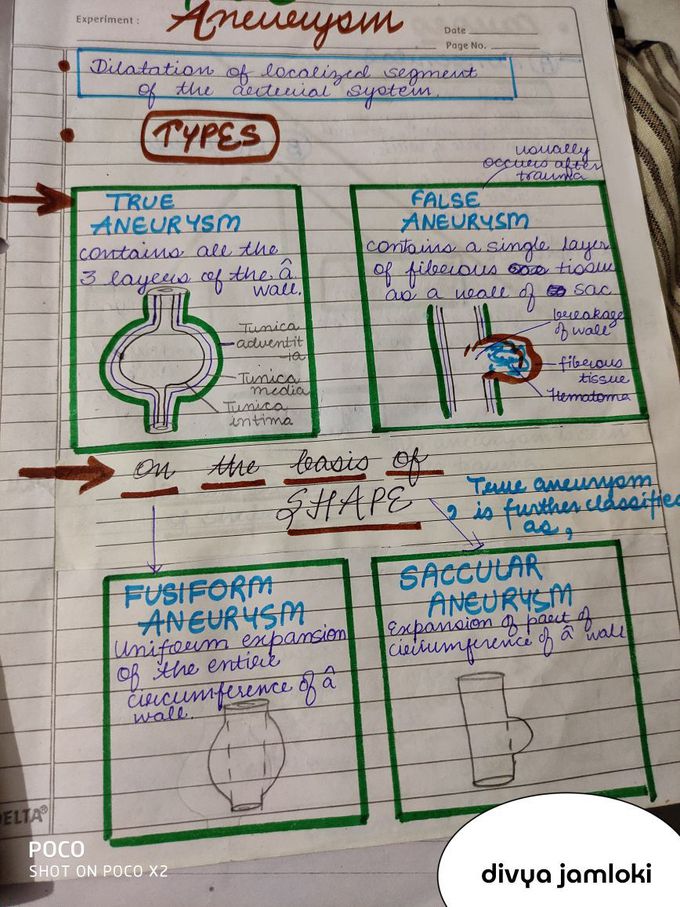 Experiment :
Aneurysm
Date
Page No.
Dilatation of localized segment
of the arterial system.
TYPES
usually
occurs after
trauma
TRUE
ANEURYSM
contains all the
3 layers of the â
wall.
Tunica
adventit
ia
Tunica
media
Tunica
intima
FALSE
ANEURYSM
contains a single layer
of fiberous tissue
as a wall of sac.
breakage
of wall
fiberous
tissue
Hematoma
on the basis of
SHAPE
True aneurysm
is further classified
as,
FUSIFORM
ANEURYSM
Uniform expansion
of the entire
circumference of â
wall.
SACCULAR
ANEURYSM
Expansion of part of
circumference of â wall
DELTA®
POCO
SHOT ON POCO X2
divya jamloki